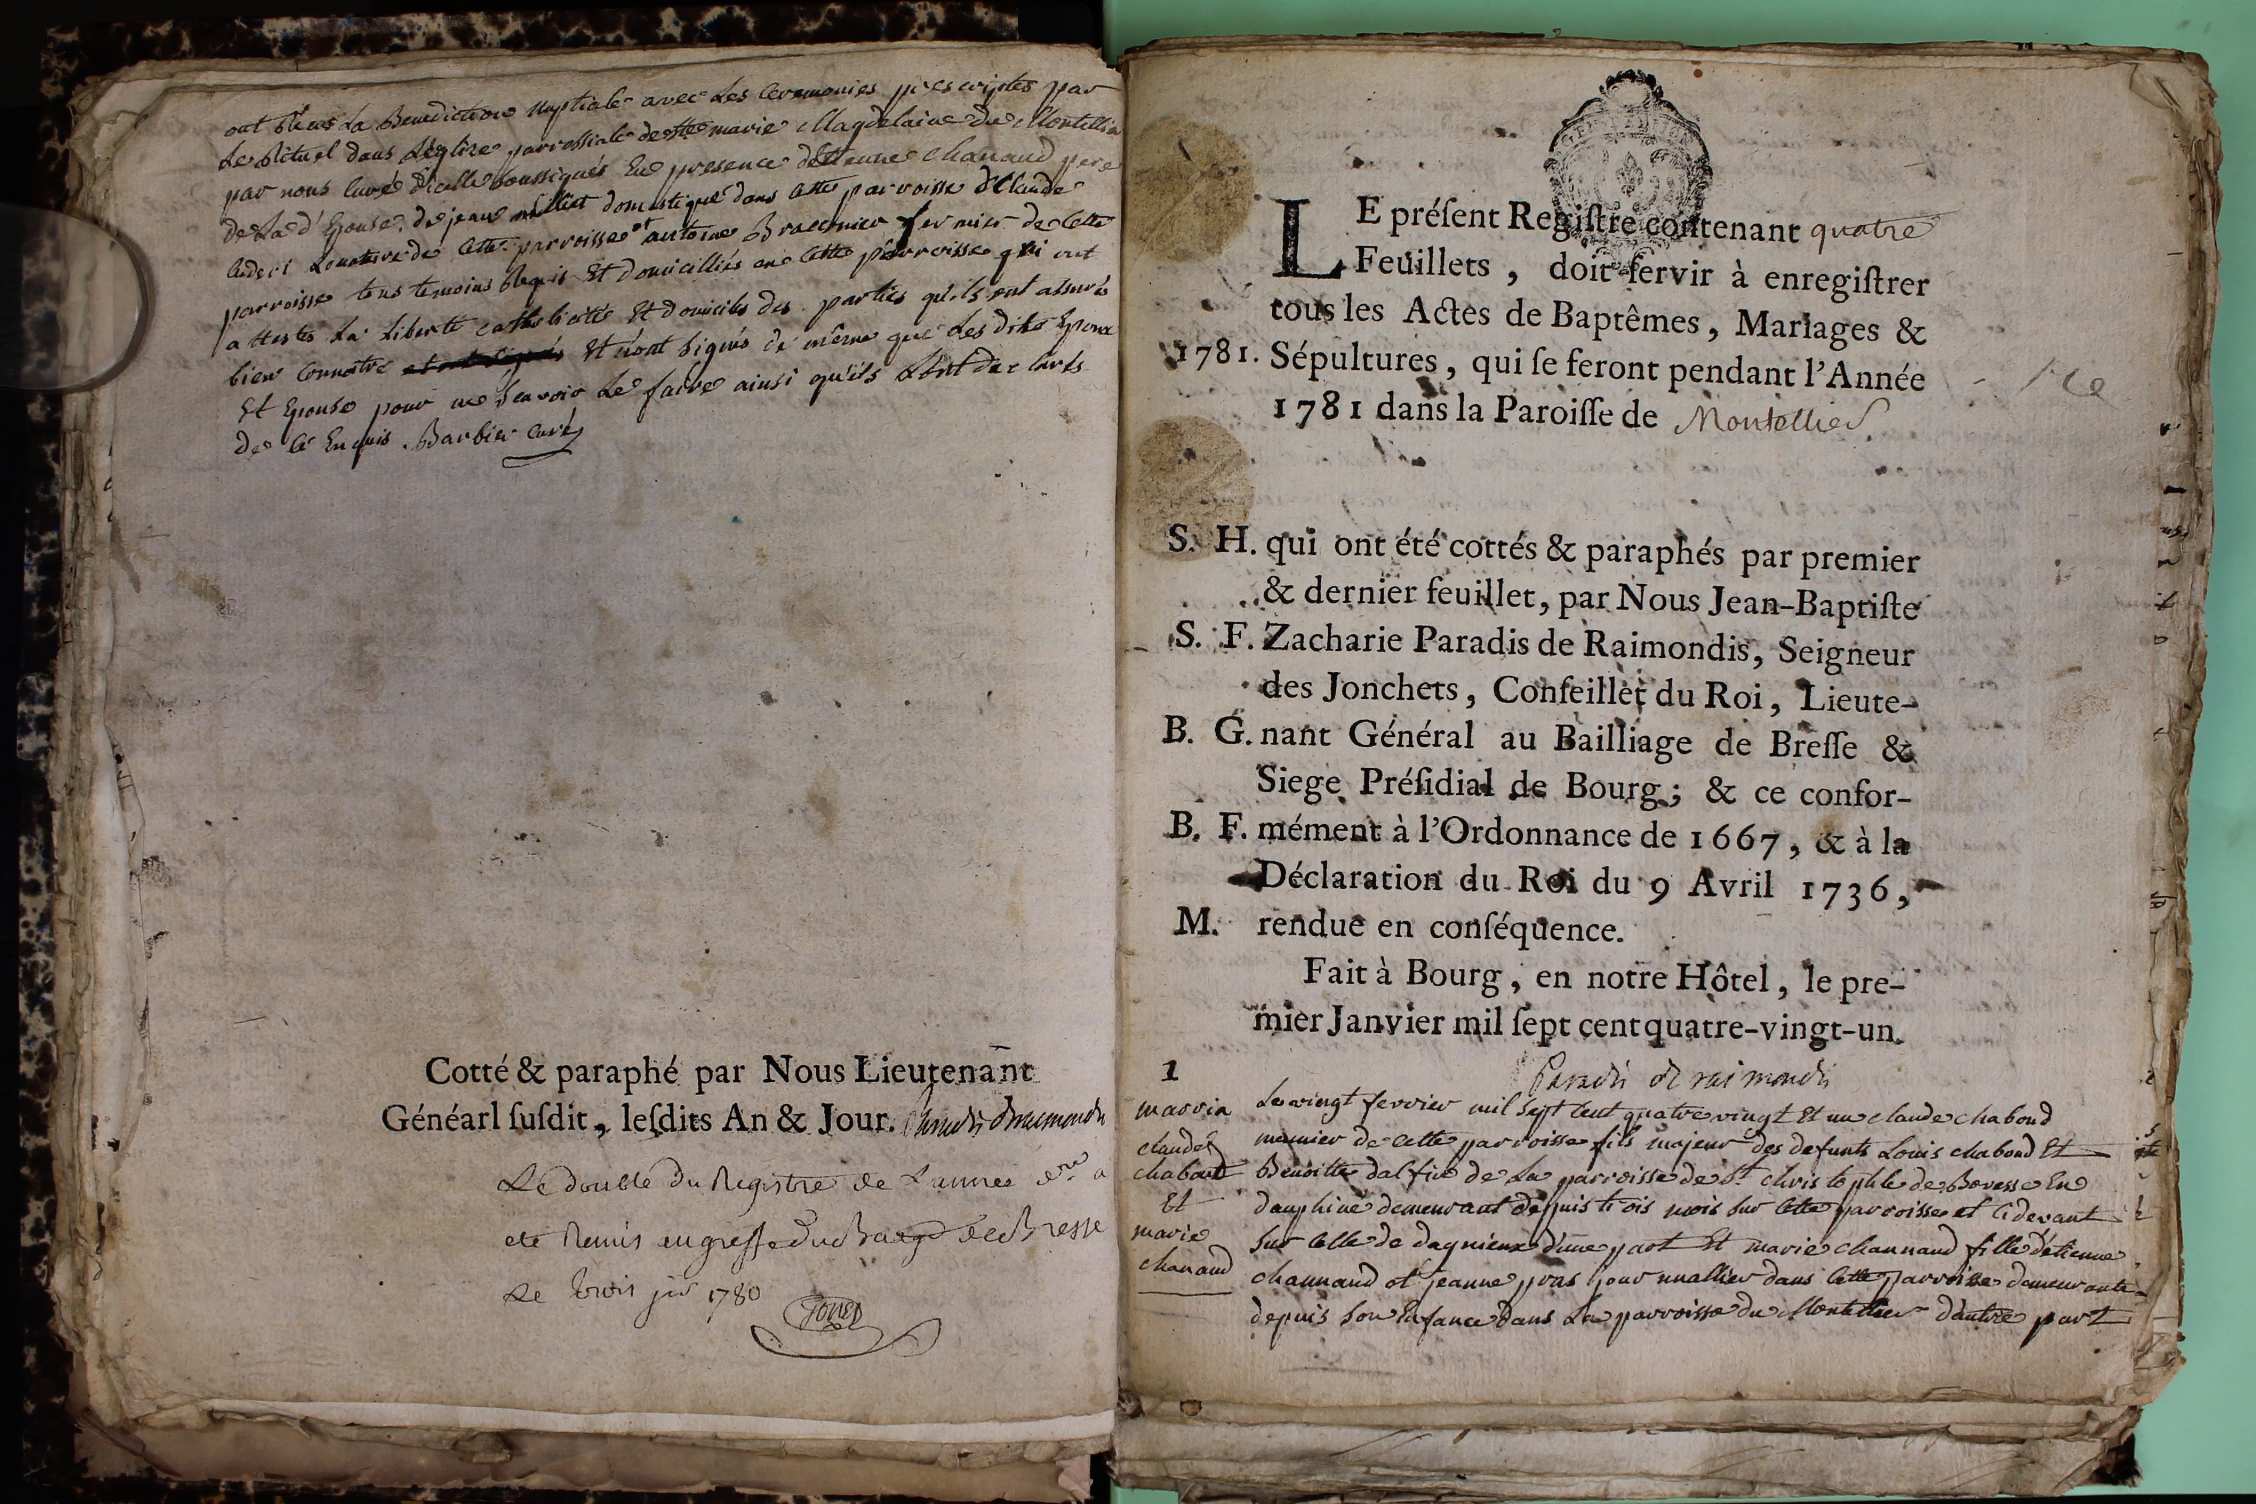 ont reçus La Benediction nuptiale avec Les Ceremonies prescriptes par
Le Rituel dans L'eglise parrossiale de ste marie Magdelaine du Montellier
par nous Curé d'icelle soussignés En presence d'Etienne Chanaud pere
de La d. Epouse, de jean millet domestique dans cette parroisse de Claude
Locataire de cette parroisse et antoine Braconnier fermier de Cette
parroisse tous temoins Requis Et domicilliés en Cette parroisse qui ont
attestés La Liberté catholicité Et domicile des parties qu'ils ont assurés
bien Connaitre Et n'ont signés de même que Les dits Epoux
Et Epouse pour ne sçavoir Le faire ainsi qu'ils L'ont declarés
de ce Enquis. Barbier Curé
Cotté & paraphé par Nous Lieutenant
Généarl ſuſdit, leſdits An & Jour. Paradis de raimondis
Le double du Registre de L'année d.re a
eté Remis au greffe du Baage de Bresse
Le trois jer 1780
LE préſent Regiſtre contenant quatre
Feuillets, doit ſervir à enregiſtrer
tous les Actes de Baptêmes, Mariages &
1781. Sépultures, qui ſe feront pendant l'Année
1781 dans la Paroiſſe de Montellier
S. H. qui ont été cottés & paraphés par premier
& dernier feuillet, par Nous Jean-Baptiſte
S. F. Zacharie Paradis de Raimondis, Seigneur
des Jonchets, Conſeiller du Roi, Lieute-
B. G. nant Général au Bailliage de Breſſe &
Siege Préſidial de Bourg; & ce confor-
B. F. mément à l'Ordonnance de 1667, & à la
Déclaration du Roi du 9 Avril 1736,
M. rendue en conſéquence.
Fait à Bourg, en notre Hôtel, le pre-
mier Janvier mil ſept cent quatre-vingt-un.
Paradis de raimondis
1
marria
claude
chabond
Et
marie
chanaud
Le vingt fevrier mil sept Cent quatre vingt Et un claude chabond
meunier de cette parroisse fils majeur des defunts Louis chabond Et
Benoitte dalfin de La parroisse de St christophle de Bovesse En
dauphiné demeurant depuis trois mois sur Cette parroisse et Cidevant
sur Celle de dagnieux d'une part Et marie channaud fille d'Etienne
channaud et jeanne pras journallier dans Cette parroisse demeurante
depuis son Enfance dans La parroisse du Montellier d'autre part